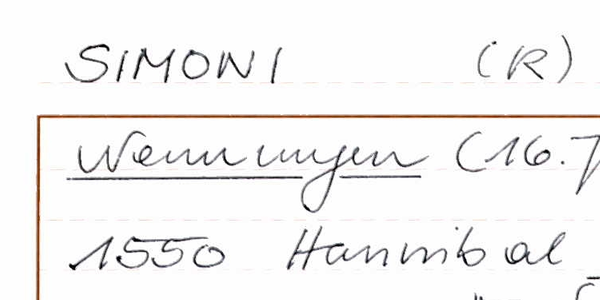 SIMONI (R)
Wennungen (16.
1550 Hannibal